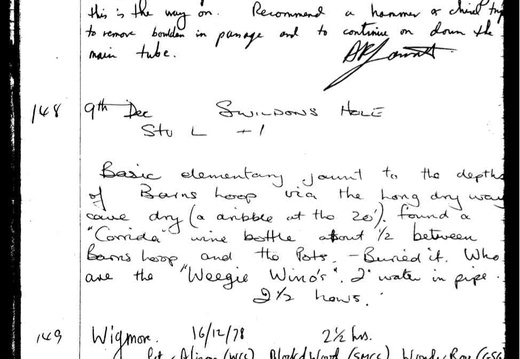 this is the way on. Recommend a hammer & chisel trip
to remove boulder in passage and to continue on down the
main tube.
148 9th Dec SWILDONS HOLE
Stu L + 1
Basic elementary jaunt to the depths
of Barns Loop via the Long dry way
cave dry (a dribble at the 20'). found a
"Corrida" wine bottle about 1/2 between
Barns Loop and the Pots. - Buried it. Who
are the "Weegie Wino's". 2" water in pipe.
2 1/2 hours.
149 Wigmore. 16/12/78 2 1/2 hrs.
Alison (WCC) (SMCC)